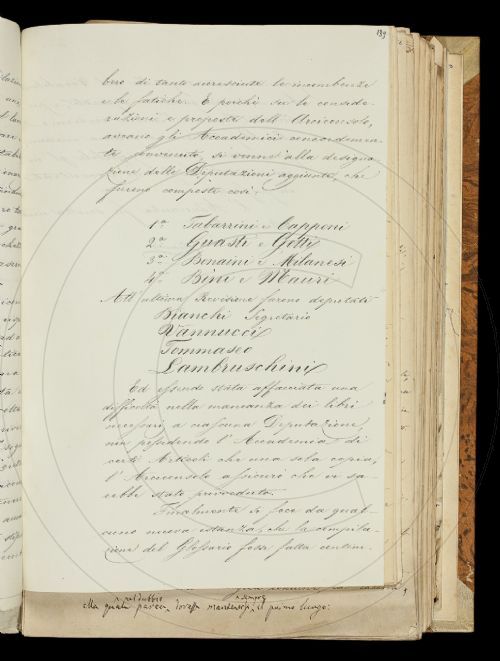 139
bero di tanto accresciute le incombenze
e le fatiche. E poichè su le conside-
razioni e proposte dell'Arciconsolo,
avevano gli Accademici concordemen-
te convenuto, si venne alla designa-
zione delle Deputazioni aggiunte, che
furono composte così:
1a Tabarrini e Capponi
2a Guasti e Gotti
3a Bonaini e Milanesi
4a Bini e Mauri
All'ultima Revisione furono deputati
Bianchi Segretario
Vannucci
Tommaseo
Lambruschini
Ed essendo stata affacciata una
difficoltà nella mancanza dei libri
necessari a ciascuna Deputazione,
non possedendo l'Accademia di
certi Articoli che una sola copia,
l'Arciconsolo assicurò che vi sa-
rebbe stato provveduto.
Finalmente si fece da qual-
cuno nuova istanza, che la compila-
zione del Glossario fosse fatta contem-
alla quale pareva doversi mantenere il primo luogo: